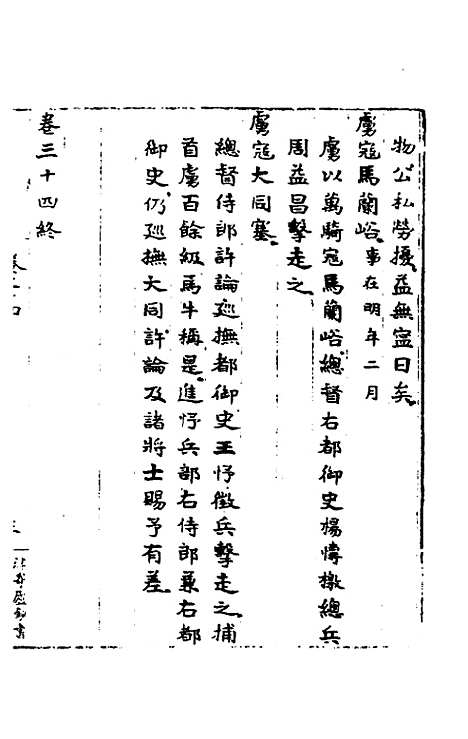 物公私勞擾益無寧日矣
虜寇馬蘭峪事在明年二月
虜以萬騎寇馬蘭峪總督右都御史楊博檄總兵
周益昌擊走之
虜寇大同塞
總督侍郎許論廵撫都御史王忬徵兵擊走之捕
首虜百餘級馬牛稱是進忬兵部右侍郎兼右都
御史仍廵撫大同許論及諸將士賜予有差
卷三十四終